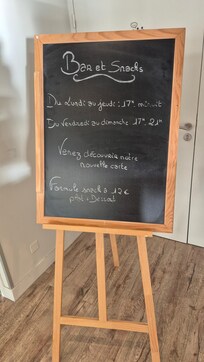 Bar et Snacks
Du Lundi au jeudi : 17h. minuit
Du Vendredi au dimanche 17h. 21h
Venez découvrir notre
nouvelle carte
Formule snack à 12€
plat + Dessert